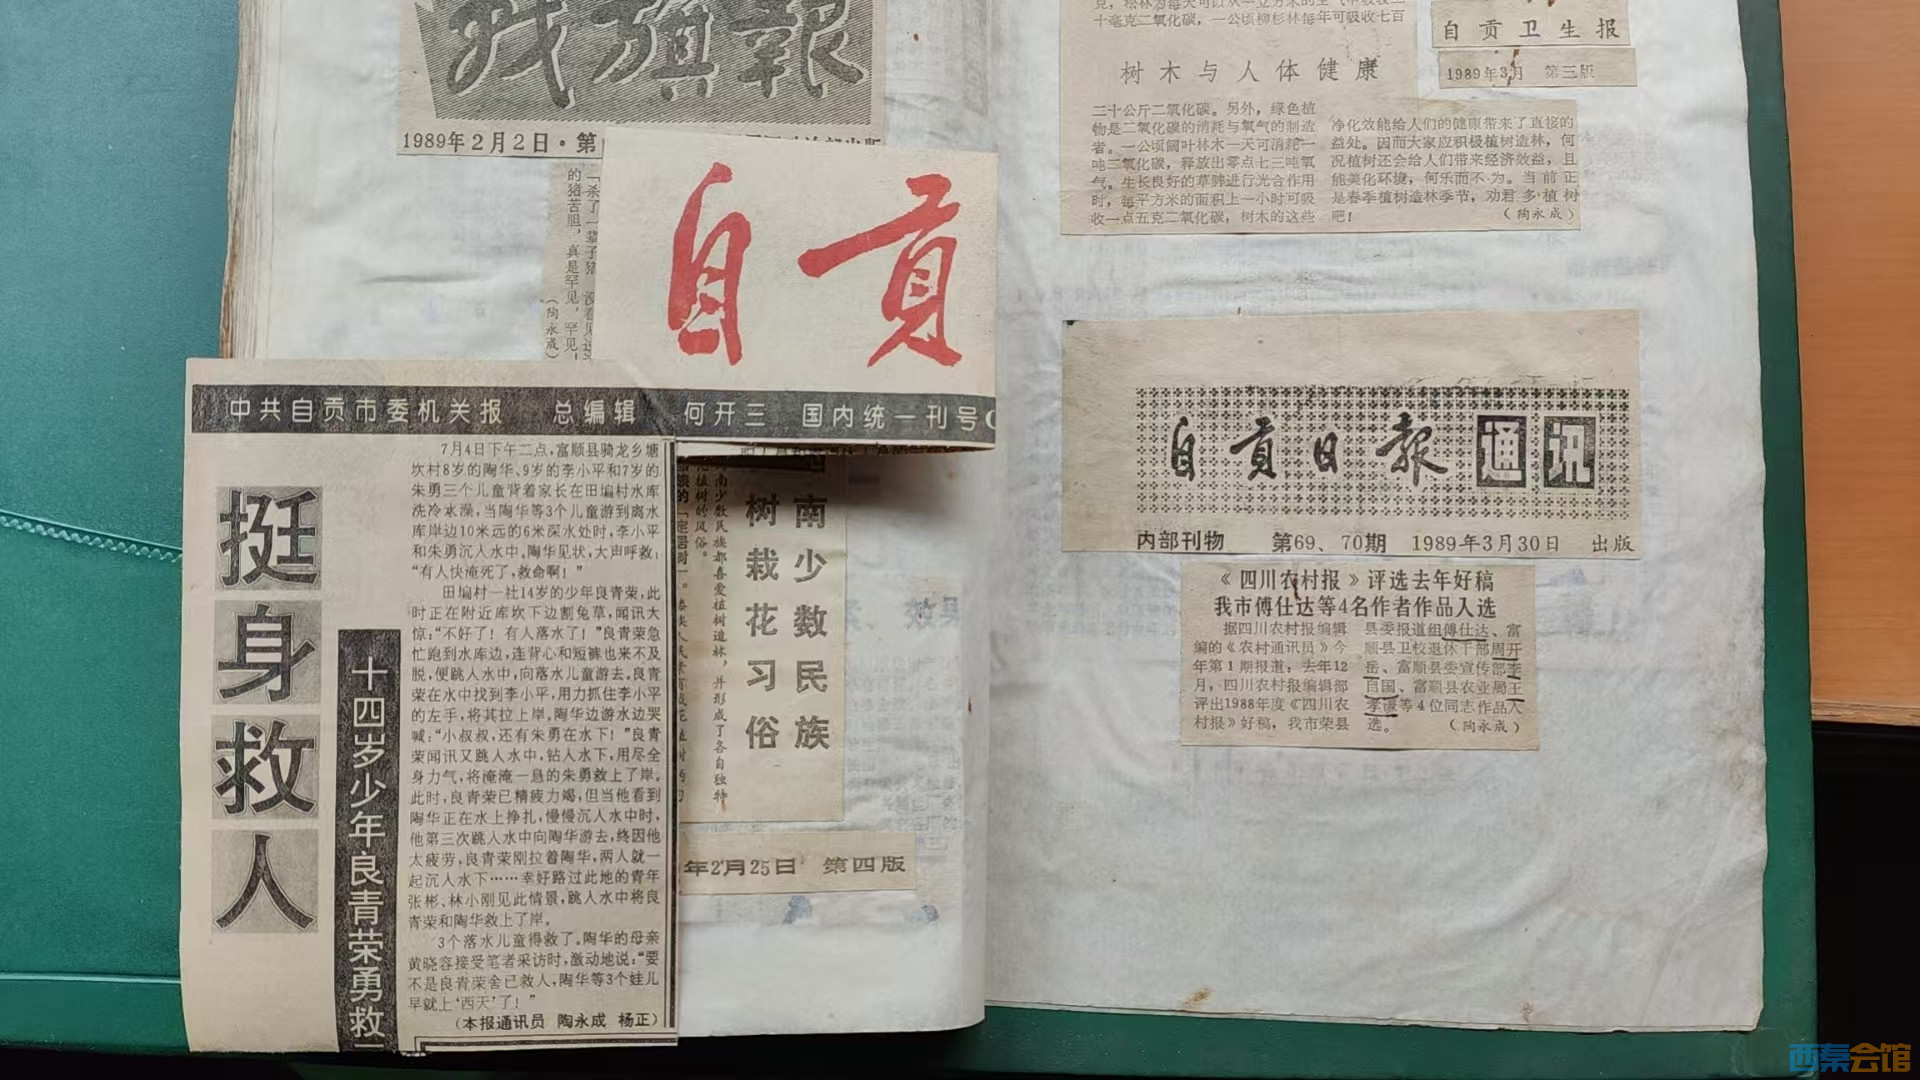 战旗報
1989年2月2日·第
「杀了一辈子猪
的猪苦胆，真是罕见，罕见！
（陶永成）
自贡
中共自贡市委机关报 总编辑 何开三 国内统一刊号
挺身救人
十四岁少年良青荣勇救
7月4日下午二点，富顺县骑龙乡塘
坎村8岁的陶华、9岁的李小平和7岁的
朱勇三个儿童背着家长在田塥村水库
洗冷水澡，当陶华等3个儿童游到离水
库岸边10米远的6米深水处时，李小平
和朱勇沉入水中，陶华见状，大声呼救：
“有人快淹死了，救命啊！”
田塥村一社14岁的少年良青荣，此
时正在附近库坎下边割兔草，闻讯大
惊：“不好了！有人落水了！”良青荣急
忙跑到水库边，连背心和短裤也来不及
脱，便跳入水中，向落水儿童游去。良青
荣在水中找到李小平，用力抓住李小平
的左手，将其拉上岸。陶华边游水边哭
喊：“小叔叔，还有朱勇在水下！”良青
荣闻讯又跳入水中，钻入水下，用尽全
身力气，将淹淹一息的朱勇救上了岸。
此时，良青荣已精疲力竭，但当他看到
陶华正在水上挣扎，慢慢沉入水中时，
他第三次跳入水中向陶华游去，终因他
太疲劳，良青荣刚拉着陶华，两人就一
起沉入水下……幸好路过此地的青年
张彬、林小刚见此情景，跳入水中将良
青荣和陶华救上了岸。
3个落水儿童得救了。陶华的母亲
黄晓容接受笔者采访时，激动地说：“要
不是良青荣舍已救人，陶华等3个娃儿
早就上‘西天’了！”
（本报通讯员 陶永成 杨正）
南少数民族
树栽花习俗
南少数民族都喜爱植树造林，并形成了各自独特
植树的风俗。
年2月25日 第四版
十毫克二氧化碳，一公顷柳杉林每年可吸收七百
树木与人体健康
三十公斤二氧化碳。另外，绿色植
物是二氧化碳的消耗与氧气的制造
者。一公顷阔叶林木一天可消耗一
吨二氧化碳，释放出零点七三吨氧
气。生长良好的草脾进行光合作用
时，每平方米的面积上一小时可吸
收一点五克二氧化碳，树木的这些
净化效能给人们的健康带来了直接的
益处。因而大家应积极植树造林，何
况植树还会给人们带来经济效益，且
能美化环境，何乐而不为。当前正
是春季植树造林季节，劝君多植树
吧！ （陶永成）
自贡卫生报
1989年3月 第三版
自贡日报通讯
内部刊物 第69、70期 1989年3月30日 出版
《四川农村报》评选去年好稿
我市傅仕达等4名作者作品入选
据四川农村报编辑
编的《农村通讯员》今
年第1期报道：去年12
月，四川农村报编辑部
评出1988年度《四川农
村报》好稿，我市荣县
县委报道组傅仕达、富
顺县卫校退休干部周开
岳、富顺县委宣传部李
自国、富顺县农业局王
孝谦等4位同志作品入
选。 （陶永成）
西秦会馆